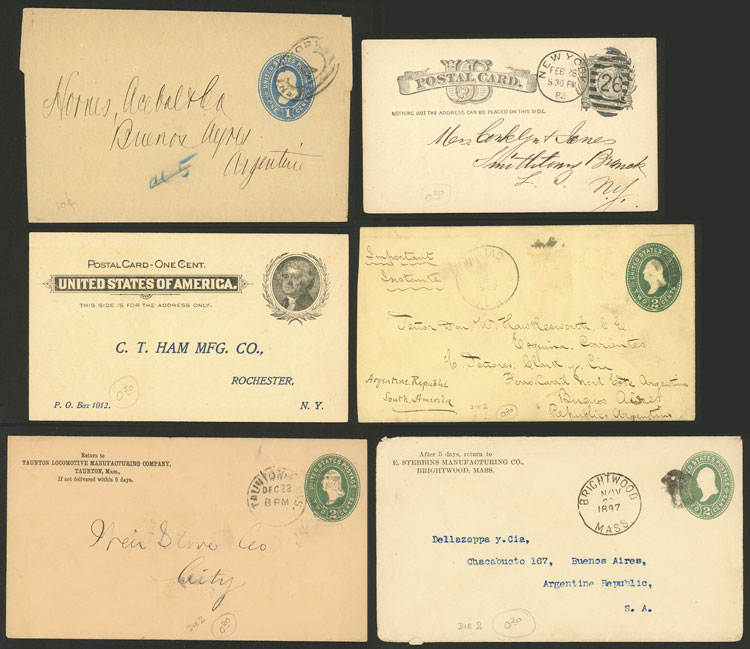 UNITED STATES POSTAGE
ONE 1 CENT
Hornes, Acebal & Co
Buenos Ayres
Argentine
10¢
POSTAL CARD.
NOTHING BUT THE ADDRESS CAN BE PLACED ON THIS SIDE.
NEW YORK
FEB 28
5 30 PM
82
26
Mess Conklyn & Jones
Smithtown Branch
L. I. N.Y.
0.20
POSTAL CARD - ONE CENT.
UNITED STATES OF AMERICA.
THIS SIDE IS FOR THE ADDRESS ONLY.
C. T. HAM MFG. CO.,
ROCHESTER,
P. O. Box 1012.
N. Y.
0.20
Important
Instante
2
TWO CENTS
Señor Don W. Hawkesworth C. E.
Esquina, Corrientes
% Señores Clark y Cia
Ferro Carril Nord Este Argentino
Buenos Aires
Republica Argentina
Argentine Republic
South America
DIE 2
0.20
Return to
TAUNTON LOCOMOTIVE MANUFACTURING COMPANY,
TAUNTON, Mass.,
If not delivered within 5 days.
TAUNTON MASS.
DEC 22
8 PM
UNITED STATES POSTAGE
TWO 2 CENTS
Weir Stove Co
City
DIE 2
0.20
After 5 days, return to
E. STEBBINS MANUFACTURING CO.,
BRIGHTWOOD, MASS.
BRIGHTWOOD
NOV
1897
MASS.
UNITED STATES POSTAGE
2 CENTS
Dellazoppa y.Cia,
Chacabucto 167, Buenos Aires,
Argentine Republic,
S. A.
DIE 2
0.20